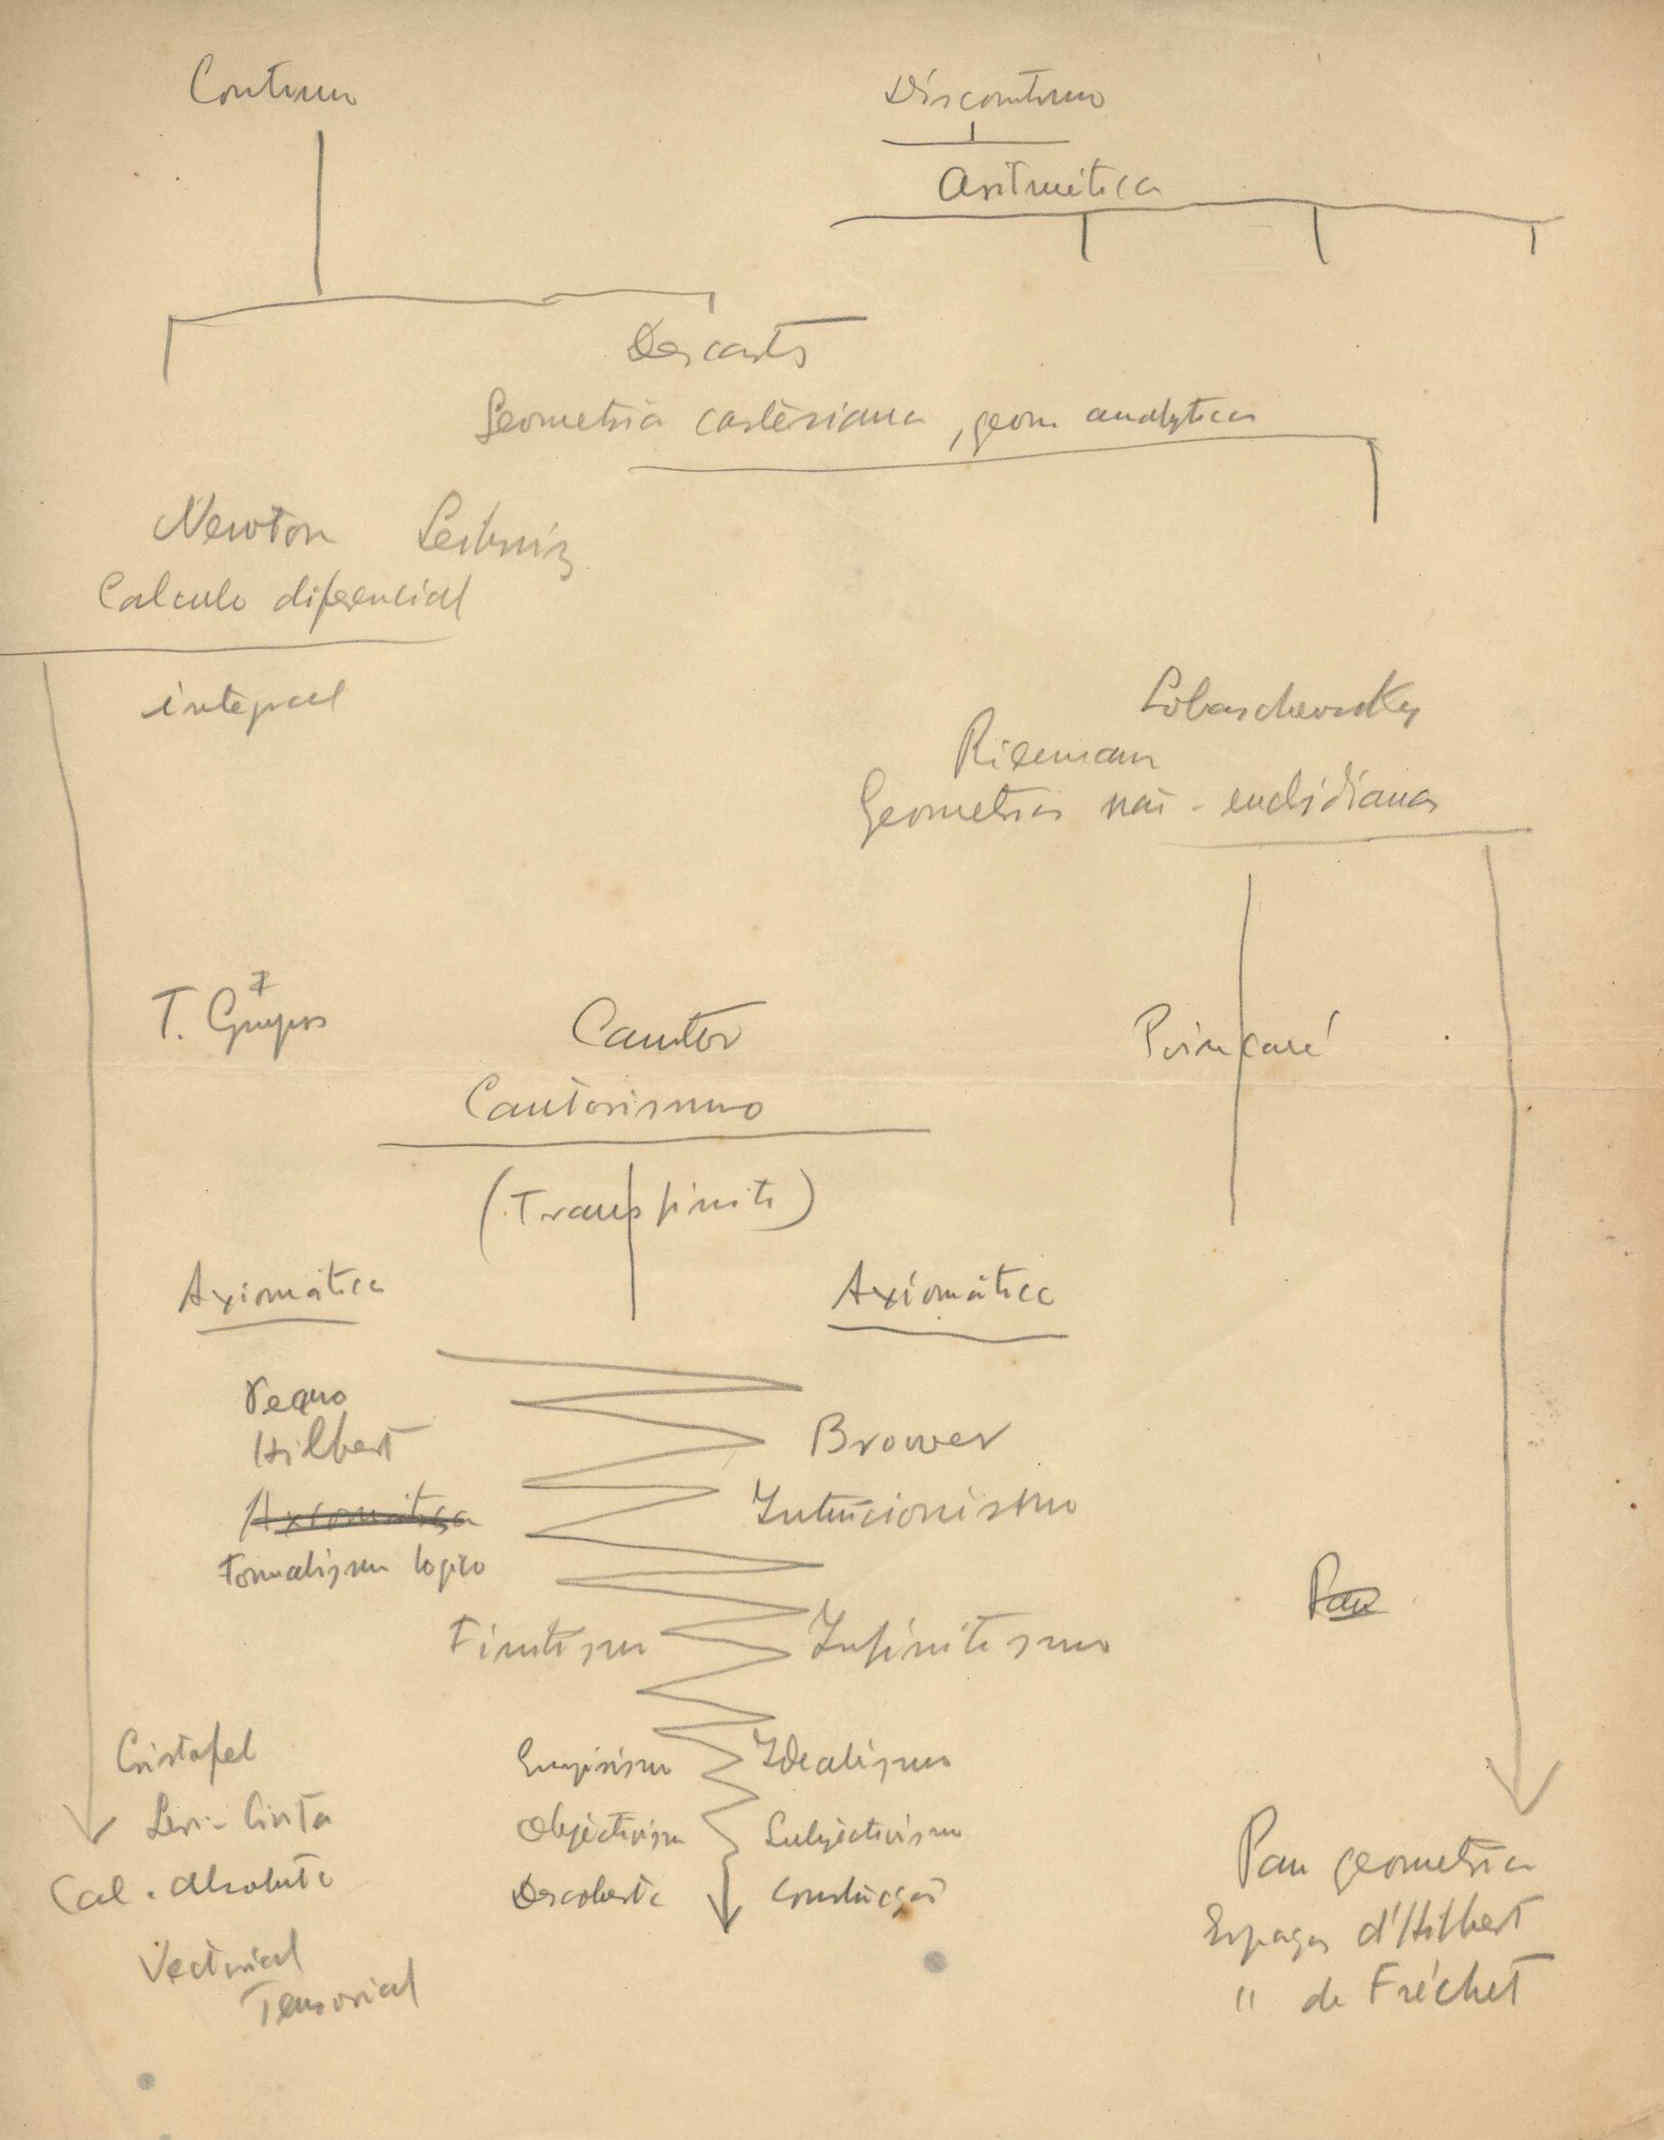 Continuo
Discontinuo
Aritmética
Descartes
Geometria cartesiana, geom analytica
Newton Leibniz
Calculo diferencial
integral
Lobaschewsky
Rieman
Geometrias não-euclidianas
T. Grupos
Cantor
Cantorismo
Poincaré
(Transfinito)
Axiomática
Axiomática
Hilbert
Brower
Axiomática
Intuicionismo
Formalismo logico
Pan
Finitismo
Infinitismo
Cristofel
Empirismo
Idealismo
Levi-Civita
Objectivismo
Subjectivismo
Cal. absoluto
Descoberta
Construcção
Pan geometria
Espaços d'Hilbert
Vectorial
Tensorial
" de Fréchet